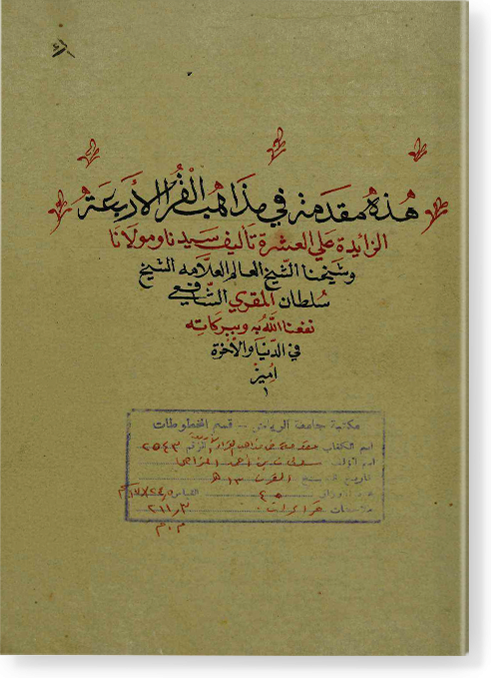 هذه مقدمة في مذاهب القراء الأربعة
الزايدة على العشرة تأليف سيدنا ومولانا
وشيخنا الشيخ العالم العلامه الشيخ
سلطان المقري الشافعي
نفعنا الله به وببركاته
في الدنيا والآخرة
امين
مكتبة جامعة الرياض - قسم المخطوطات
اسم الكتاب مقدمة في مذاهب القراء الأربعة الرقم ٢٥٤٣
اسم المؤلف سلطان بن أحمد المزاحي
تاريخ النسخ القرن ١٣ هـ
عدد الأوراق ٤٥ القياس
ملاحظات قراءات ٢١١٫٣
م.م